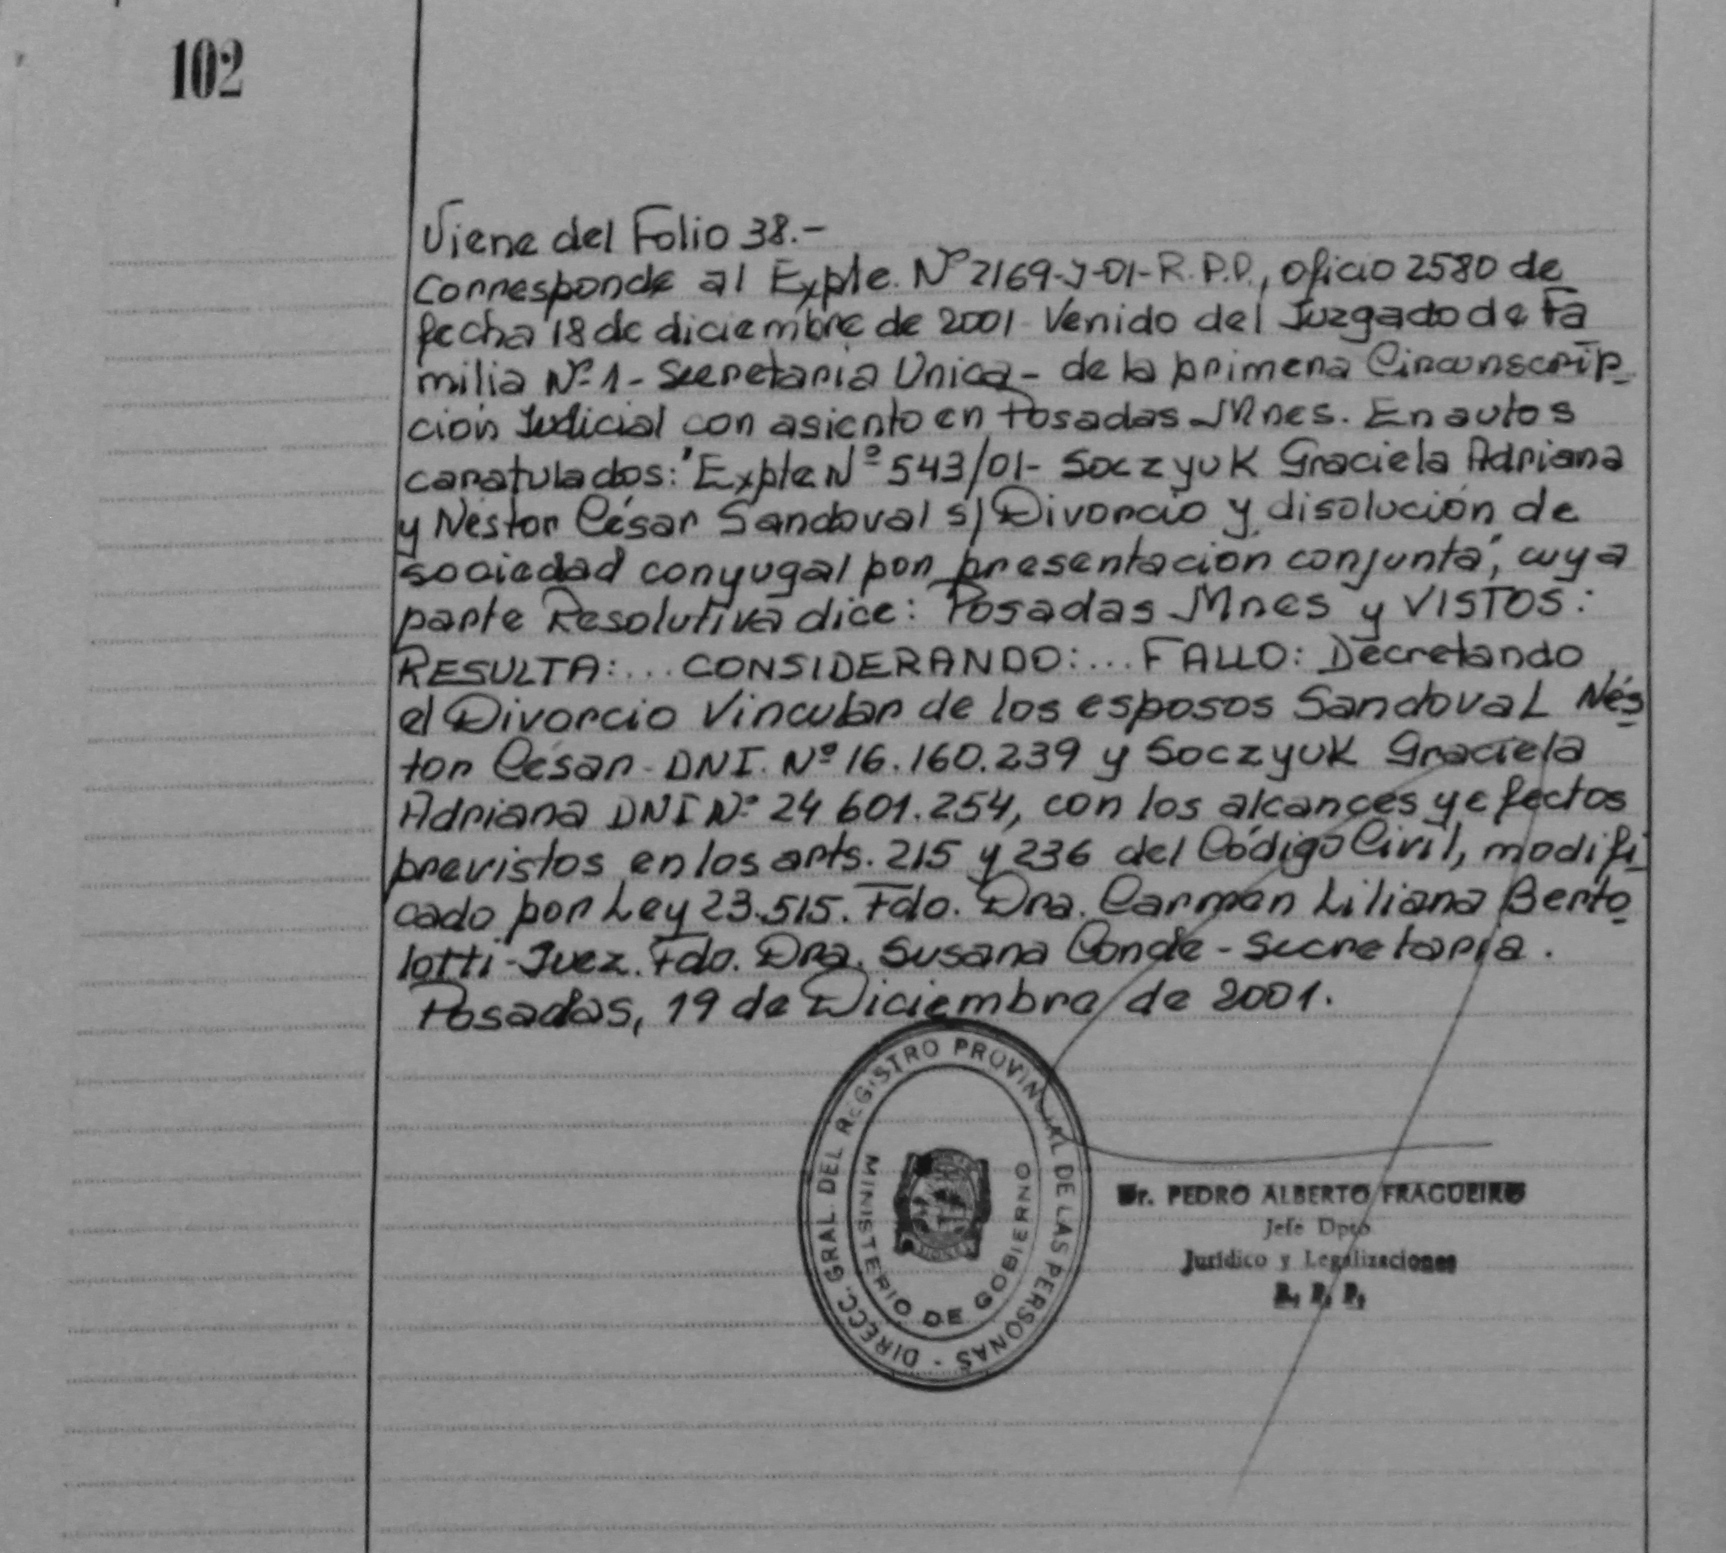 102
Viene del Folio 38.-
Corresponde al Expte. Nº 2169-J-01-R.P.P., oficio 2580 de
fecha 18 de diciembre de 2001 Venido del Juzgado de Fa
milia Nº 1 - Secretaria Unica - de la primera Circunscrip
ción Judicial con asiento en Posadas Mnes. En autos
caratulados: "Expte Nº 543/01- Soczyuk Graciela Adriana
y Néstor César Sandoval s/ Divorcio y disolución de
sociedad conyugal por presentación conjunta", cuya
parte Resolutiva dice: Posadas Mnes y VISTOS:
RESULTA:... CONSIDERANDO:... FALLO: Decretando
el Divorcio Vincular de los esposos Sandoval Nés
tor César - DNI. Nº 16.160.239 y Soczyuk Graciela
Adriana DNI Nº 24 601.254, con los alcances y efectos
previstos en los arts. 215 y 236 del Código Civil, modifi
cado por Ley 23.515. Fdo. Dra. Carmen Liliana Berto
lotti - Juez. Fdo. Dra. Susana Conde - Secretaria.
Posadas, 19 de Diciembre de 2001.
DIRECC. GRAL. DEL REGISTRO PROVINCIAL DE LAS PERSONAS -
MINISTERIO DE GOBIERNO
Dr. PEDRO ALBERTO FRAGUEIRO
Jefe Dpto
Jurídico y Legalizaciones
R. P. P.